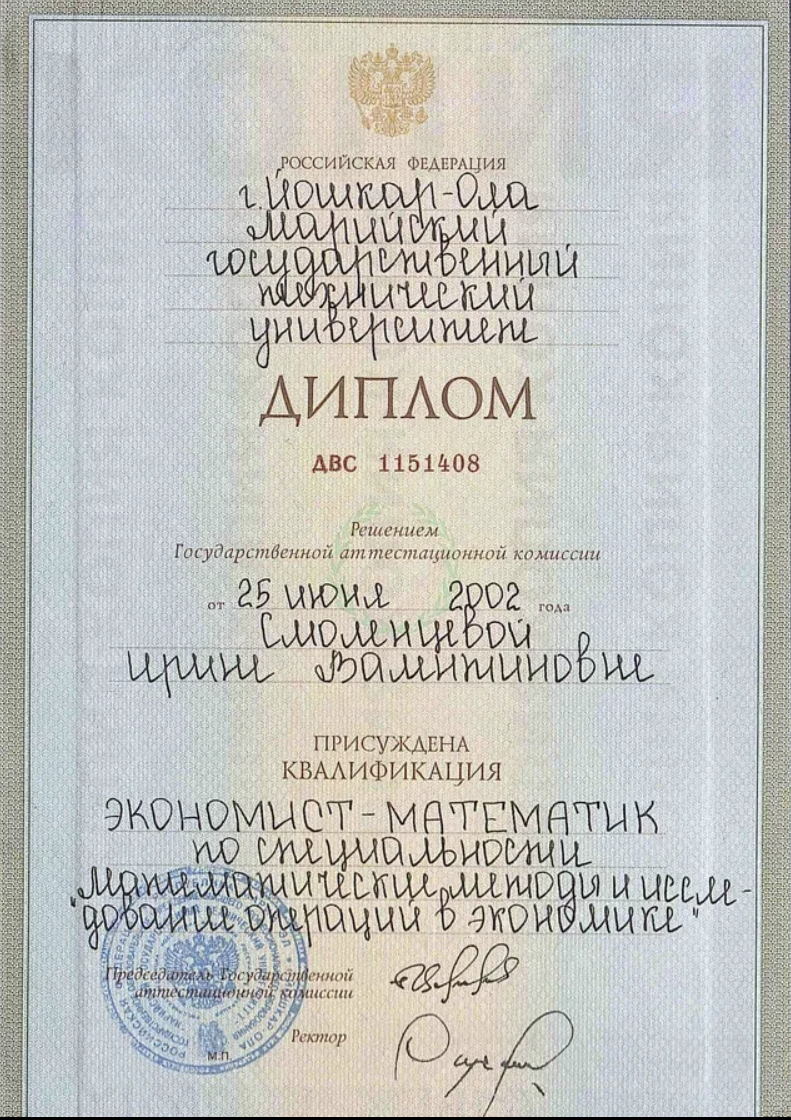 РОССИЙСКАЯ ФЕДЕРАЦИЯ
г. Йошкар-Ола
Марийский
государственный
технический
университет
ДИПЛОМ
ДВС 1151408
Решением
Государственной аттестационной комиссии
от 25 июня 2002 года
Смоленцевой
Ирине Валентиновне
ПРИСУЖДЕНА
КВАЛИФИКАЦИЯ
ЭКОНОМИСТ-МАТЕМАТИК
по специальности
"Математические методы и иссле-
дование операций в экономике"
Председатель Государственной
аттестационной комиссии
Ректор
М.П.